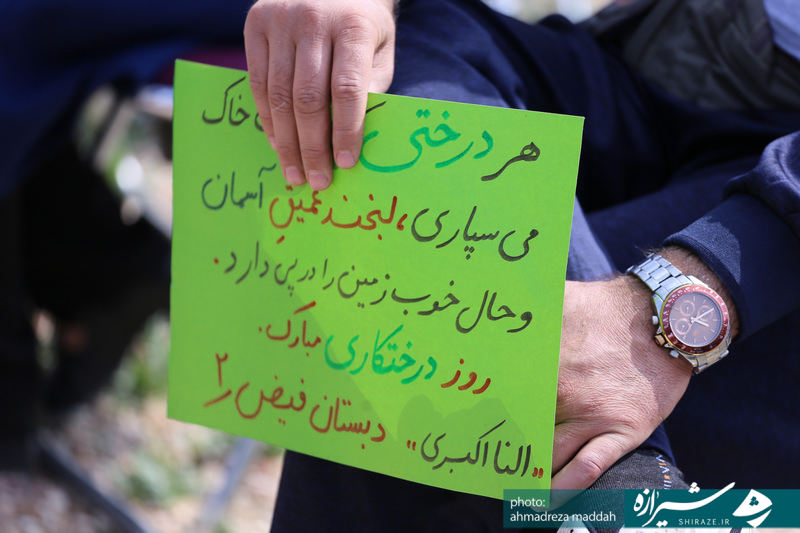 هر درختی خاک
می سپاری، لبخند عمیقِ آسمان
و حال خوب زمین را در پی دارد.
روز درختکاری مبارک.
"النا اکبری" دبستان فیض را ۲
photo:
ahmadreza maddah
شیرازه
SHIRAZE.IR